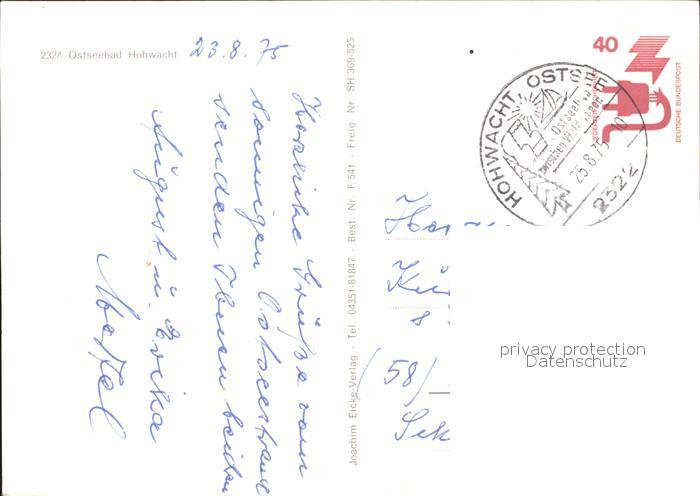 2324 Ostseebad Hohwacht
23.8.75
Herzliche Grüße vom
sonnigen Ostseestrand
senden Ihnen beiden
August u. Erika
Joachim Eicke-Verlag · Tel. 04351-81847 · Best. Nr. F 541 · Freig. Nr. SH 369-525
40
DEUTSCHE BUNDESPOST
HOHWACHT, OSTSEE
Ostseebad
25.8.75-10
2322
(58)
privacy protection
Datenschutz